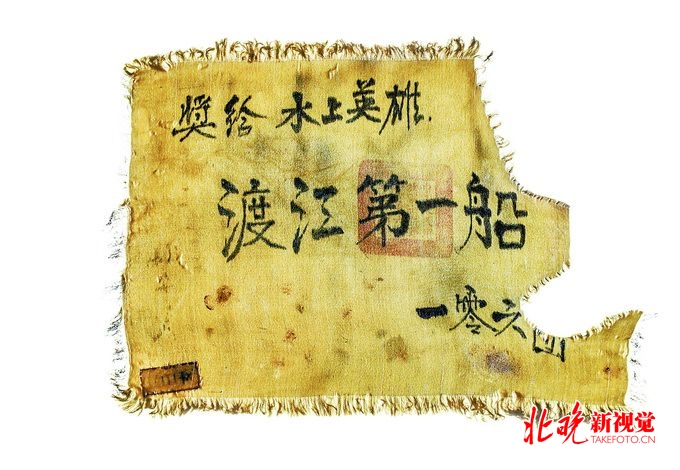 獎给 水上英雄.
渡江第一船
一零六团
北晚新视觉
TAKEFOTO.CN